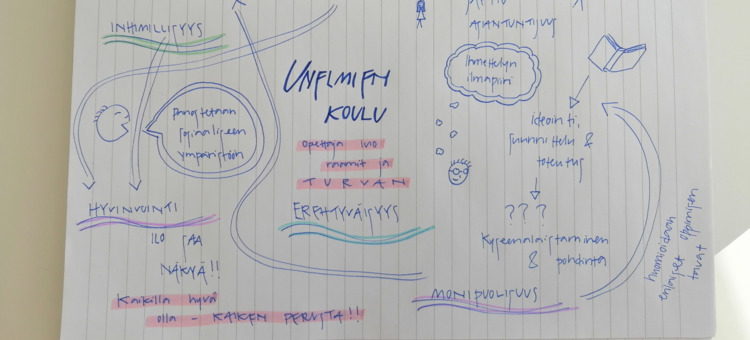 INHIMILLISYYS
panostetaan
sosiaaliseen
ympäristöön
HYVINVOINTI
ILO SAA
NÄKYÄ!!
Kaikilla hyvä
olla - KAIKEN PERUSTA!!
UNELMIEN
KOULU
opettaja luo
raamit ja
TURVAN
EREHTYVÄISYYS
ASIANTUNTIJUUS
Ihmettelyn
ilmapiiri
ideointi,
suunnittelu &
toteutus
? ? ?
Kyseenalaistaminen
& pohdinta
MONIPUOLISUUS
huomioidaan
erilaiset oppimisen
tavat